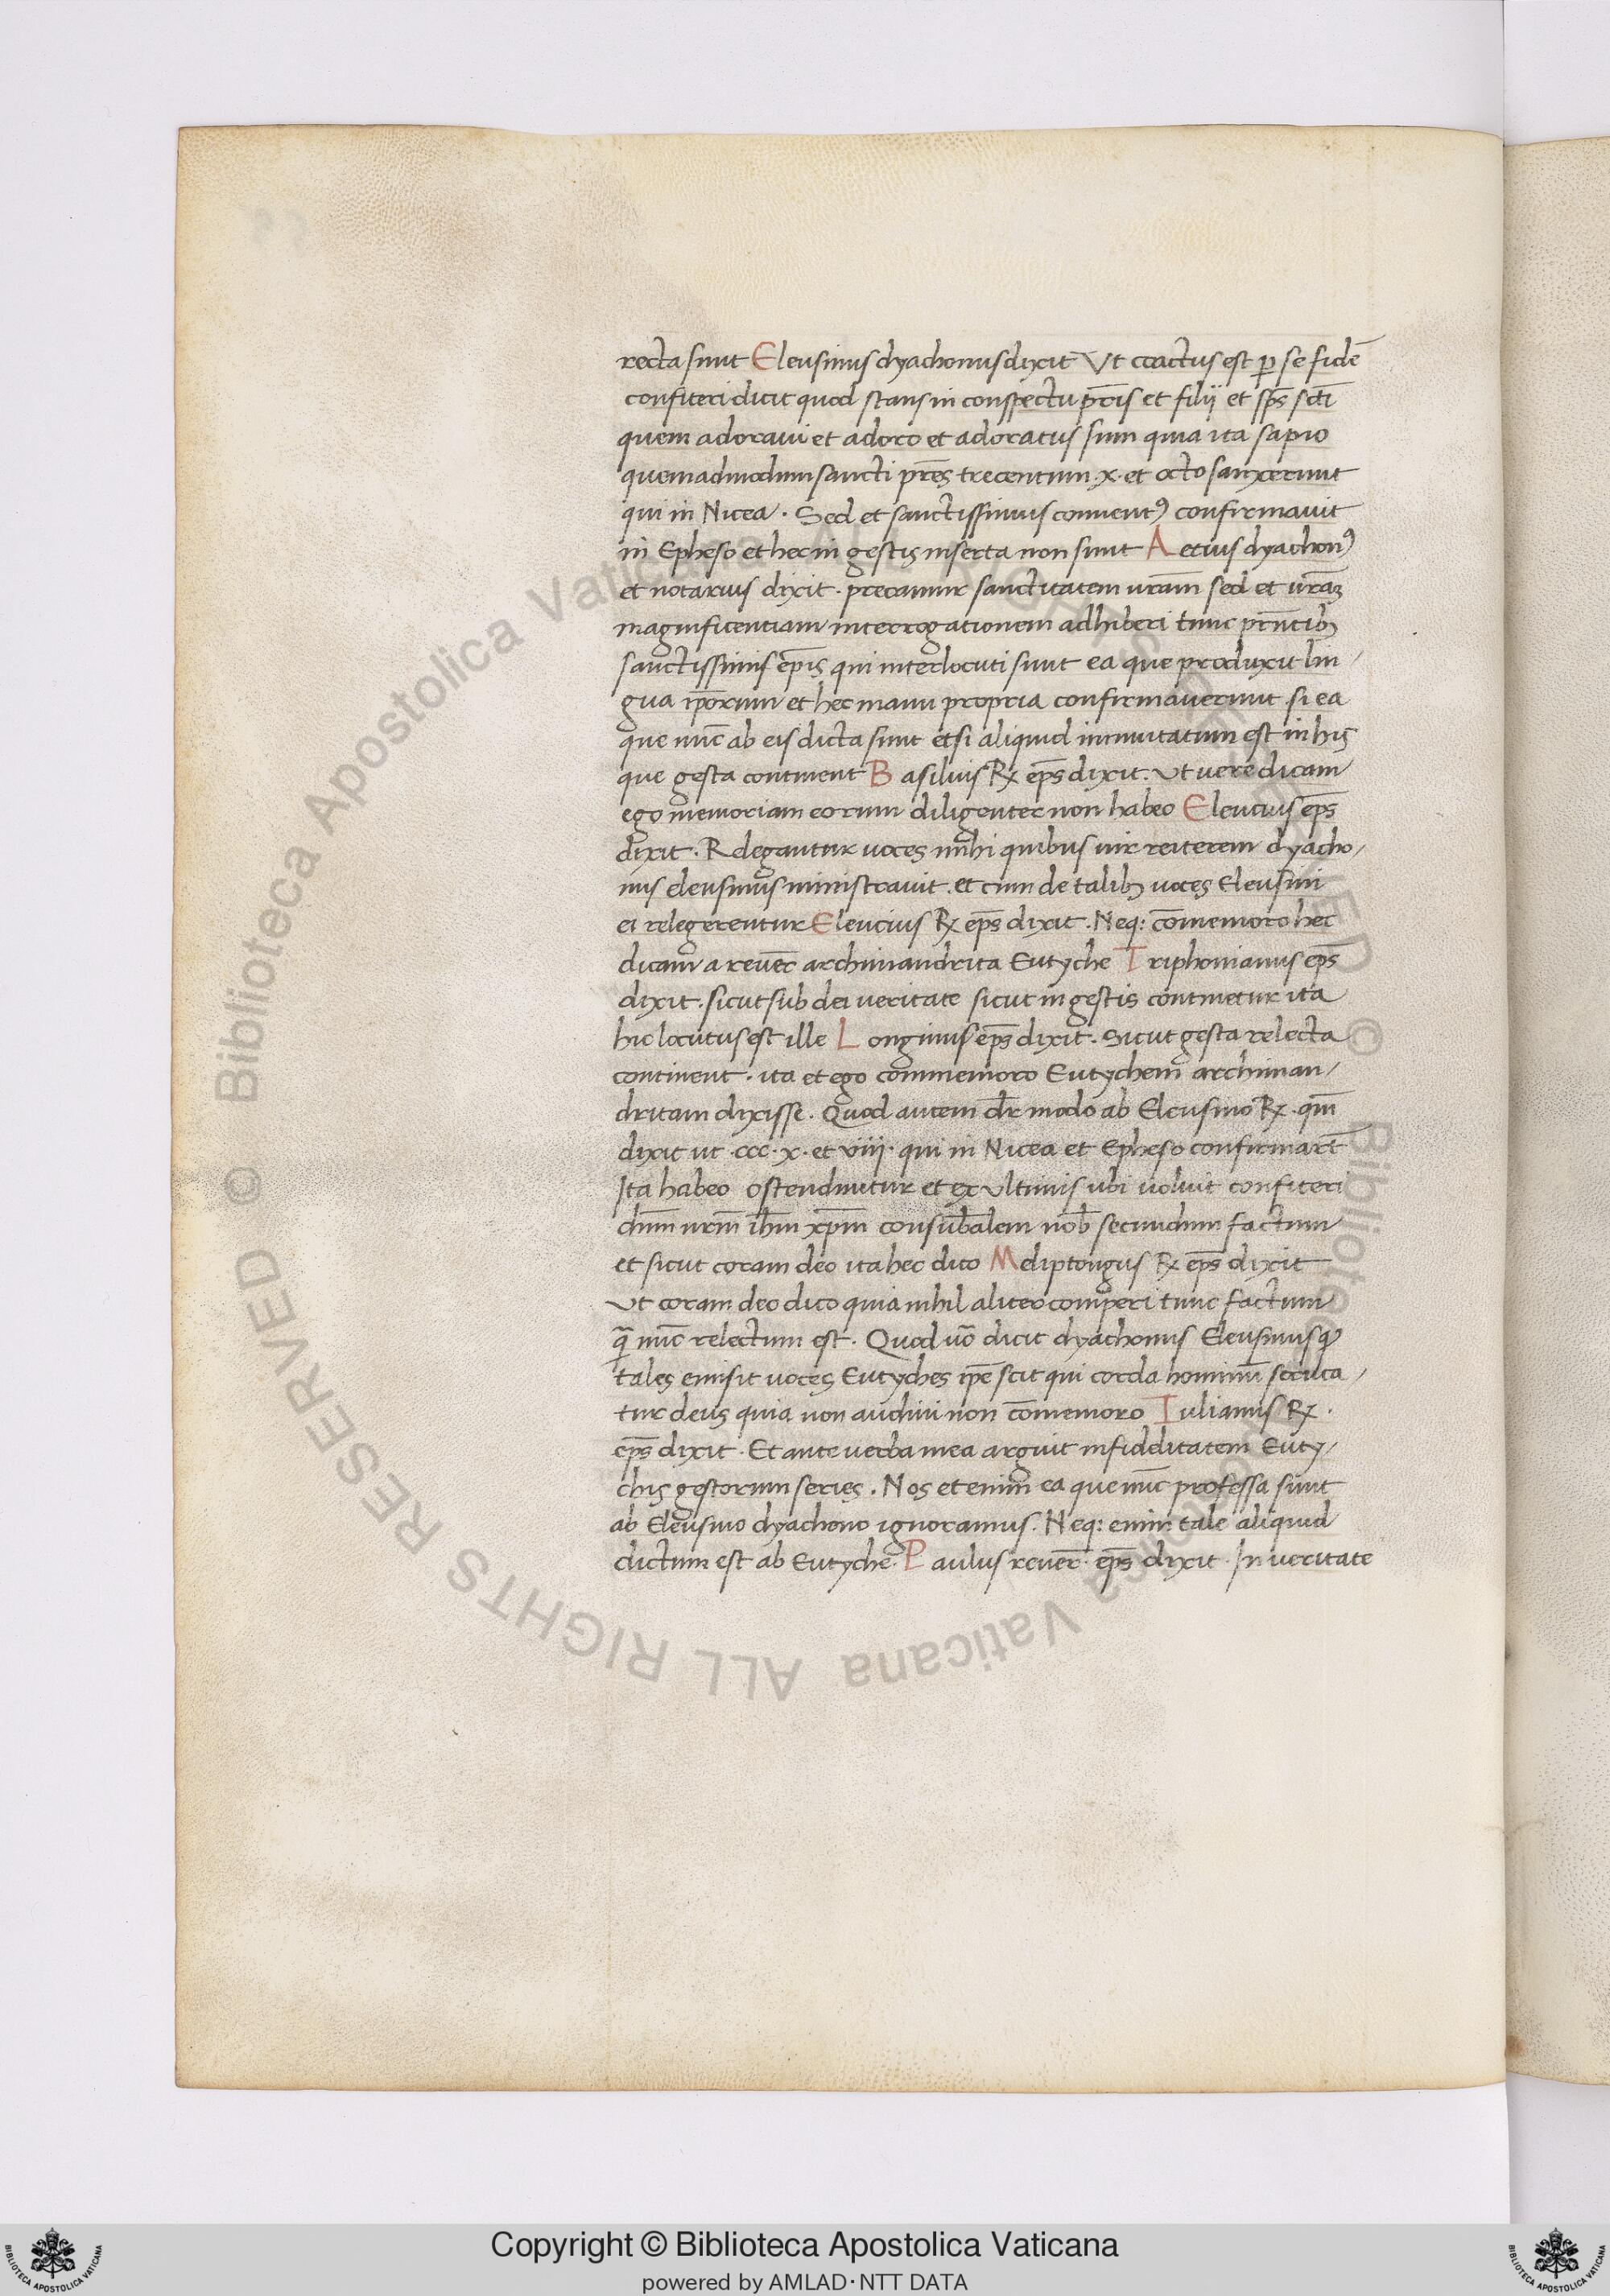 recta sunt Eleusinus dyachonus dixit Ut coactus est ꝑ se fidē
confiteri dicit quod stans in conspectu pr̄is et filij et sp̄s sc̄ti
quem adoraui et adoro et adoratus sum quia ita sapio
quemadmodum sancti pr̄es trecentum .x. et octo sanxerunt
qui in Nicea . Sed et sanctissimus conuentꝰ confirmauit
in Epheso et hec in gestis inserta non sunt Aetius dyachonꝰ
et notarius dixit . precamur sanctitatem ur̄am sed et ur̄aꝫ
magnificentiam interrogationem adhiberi tunc pr̄ntibꝫ
sanctissimis ep̄is qui interlocuti sunt ea que produxit lin/
gua ip̄orum et hec manu propria confirmauerunt si ea
que nūc ab eis dicta sunt et si aliquid inmutatum est in his
que gesta continent Basilius Rꝫ ep̄s dixit . Ut uere dicam
ego memoriam eorum diligenter non habeo Eleucius ep̄s
dixit . Relegantur uoces mihi quibus uir reiterem dyacho/
nus eleusinus ministrauit . et cum de talibꝫ uoces Eleusini
ei relegerentur Eleucius Rꝫ ep̄s dixit . Neq: cōmemoro hec
dicam a reuēr archimandrita Eutyche Triphonianus ep̄s
dixit . sicut sub dei ueritate sicut in gestis continetur ita
hic locutus est ille Longinus ep̄s dixit . Sicut gesta relecta
continent . ita et ego commemoro Eutychem archiman/
dritam dixisse . Quod autem dr̄ modo ab Eleusino Rꝫ . qm̄
dixit ut .ccc. x. et viiij. qui in Nicea et Epheso confirmar̄t
Ita habeo ostenduntur et ex ultimis ubi uoluit confiteri
dn̄m nr̄m ih̄m xp̄m consub̄alem nob̄ secundum factum
et sicut coram deo ita hec dico Mediptongus Rꝫ ep̄s dixit
Ut coram deo dico quia nihil aliter comperi tunc factum
qᷓ nūc relectum est . Quod uō dicit dyachonus Eleusinus ꝙ
tales emisit uoces Eutyches ip̄e scit qui corda hominū scruta/
tur deus quia non audiui non cōmemoro Iulianus Rꝫ .
ep̄s dixit . Et ante uerba mea arguit infidelitatem Euty/
chis gestorum series . Nos etenim ea que nūc professa sunt
ab Eleusino dyachono ignoramus . Neq: enim tale aliquid
dictum est ab Eutyche . Paulus reuer̄ . ep̄s dixit . In ueritate
© Biblioteca Apostolica Vaticana ALL RIGHTS RESERVED
© Biblioteca Apostolica Vaticana ALL RIGHTS RESERVED
Copyright © Biblioteca Apostolica Vaticana
powered by AMLAD・NTT DATA
BIBLIOTECA APOSTOLICA VATICANA
BIBLIOTECA APOSTOLICA VATICANA